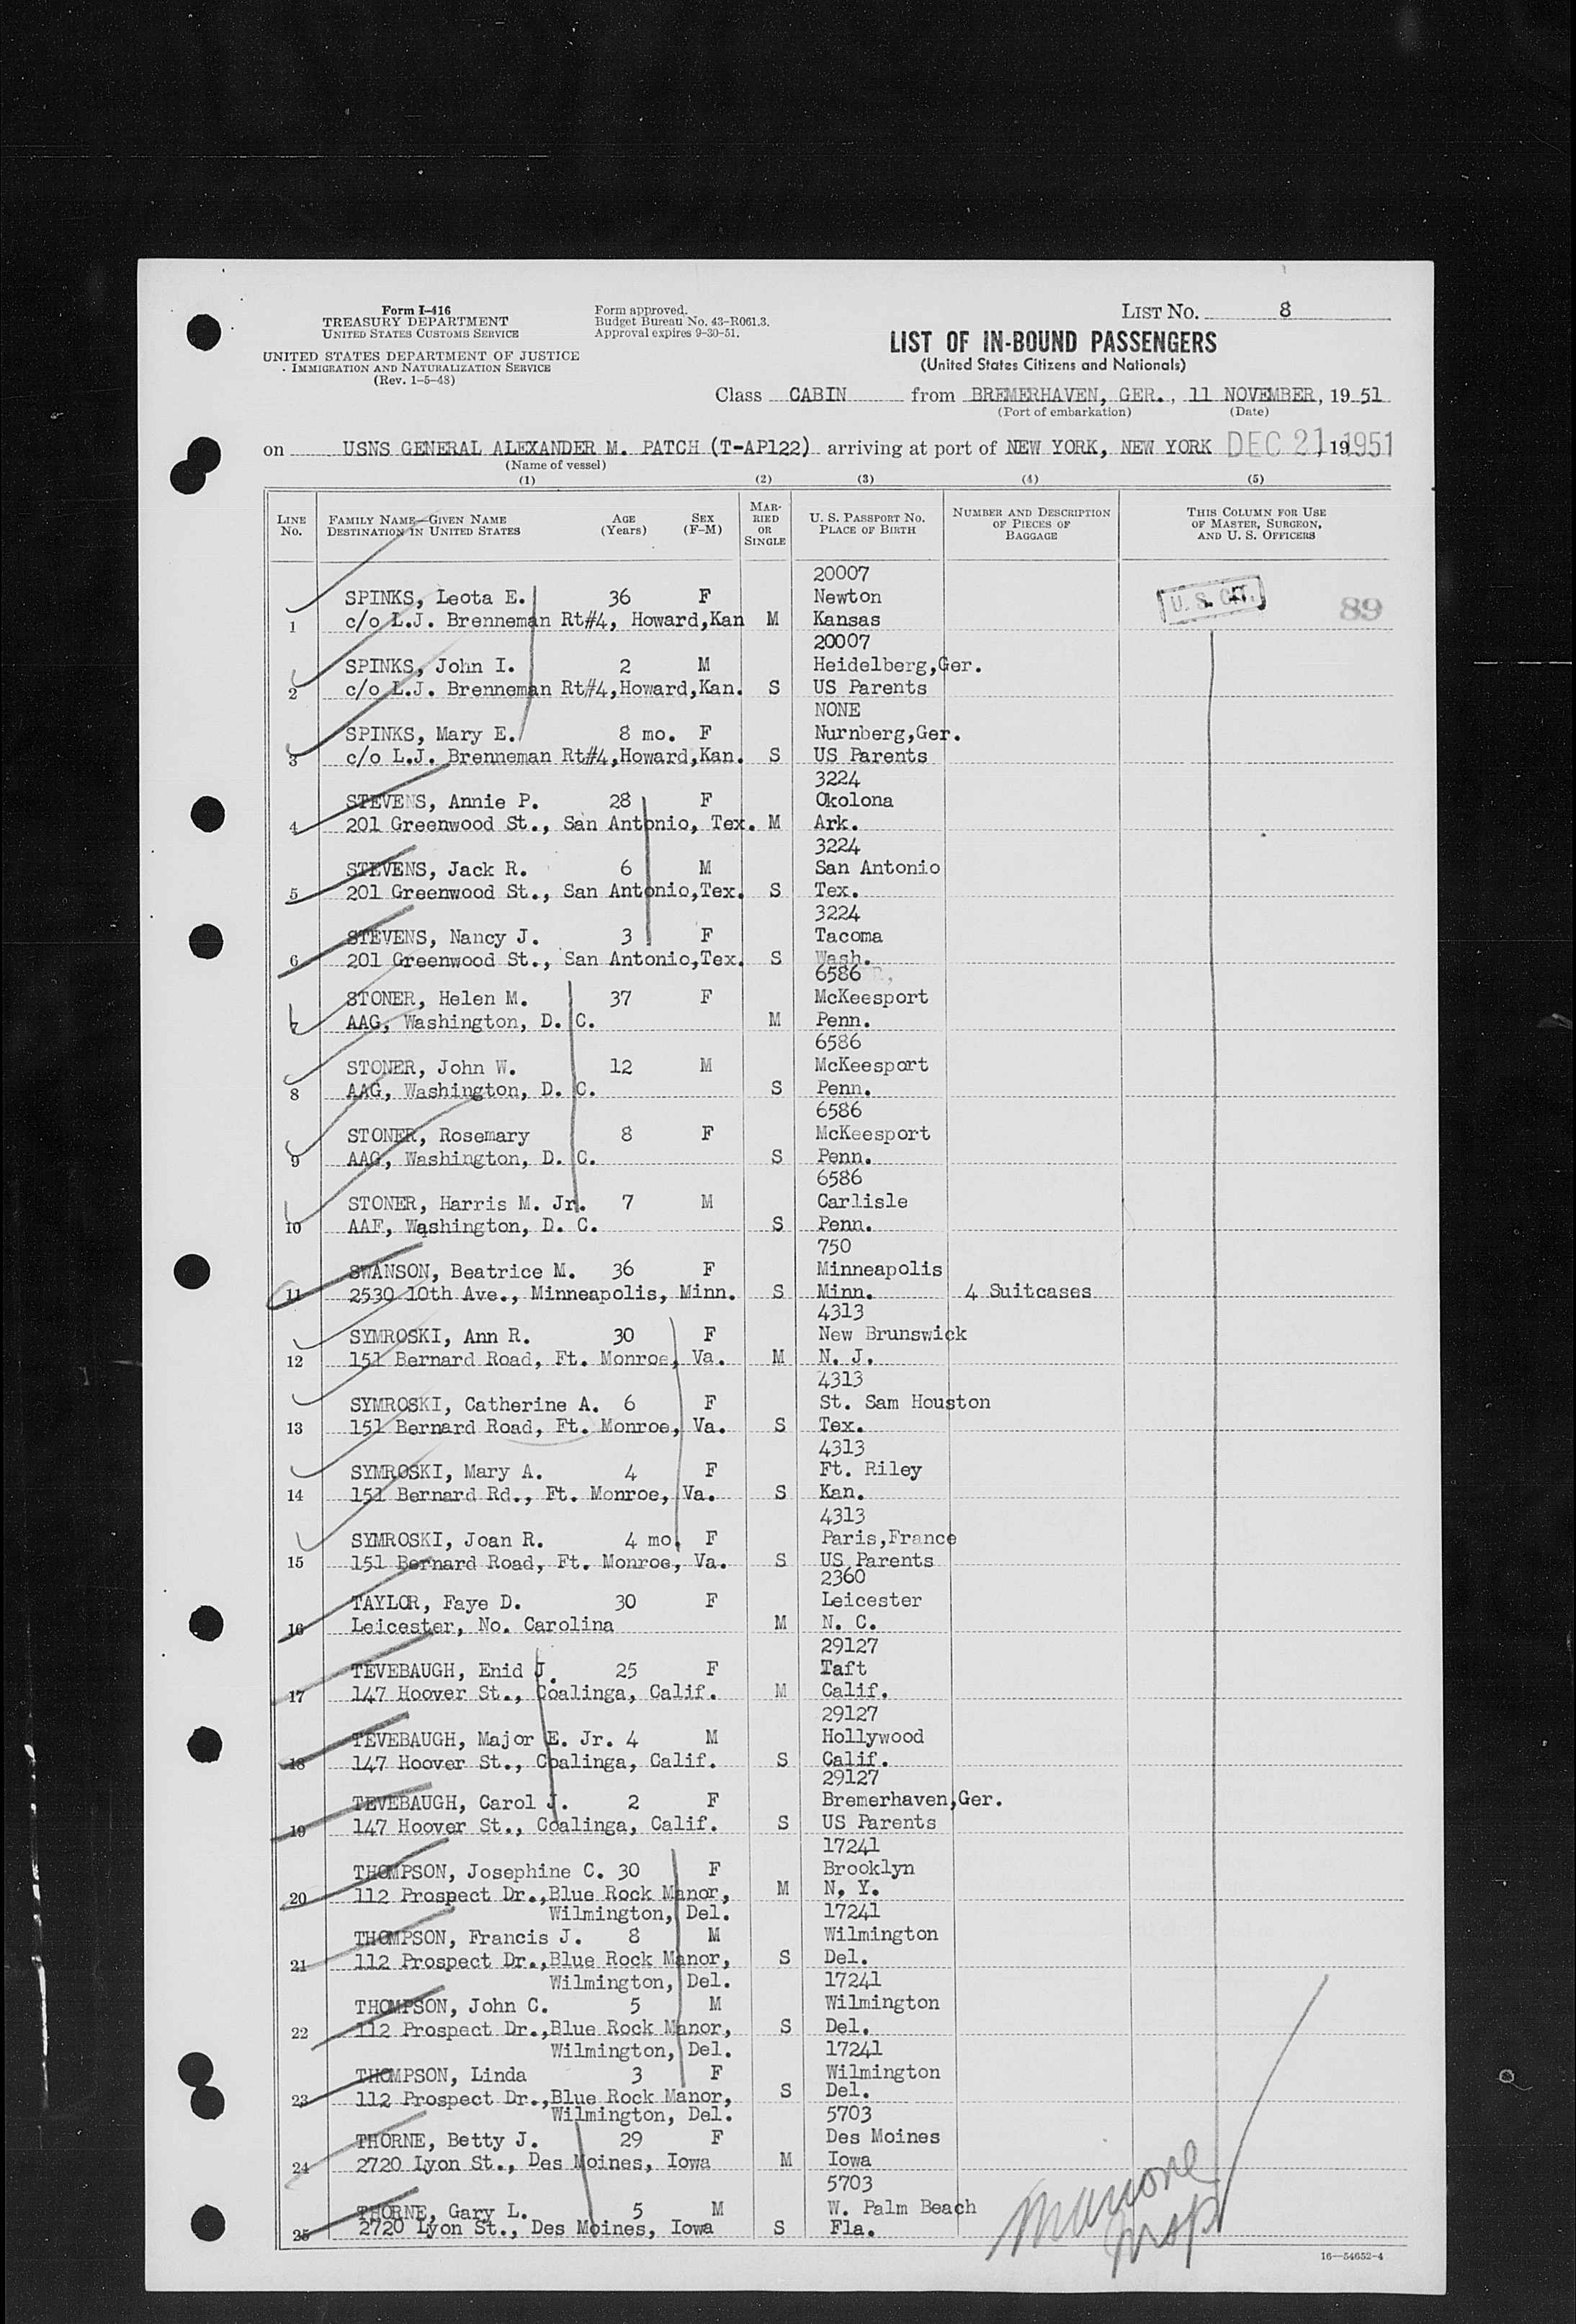 Form I-416
TREASURY DEPARTMENT
UNITED STATES CUSTOMS SERVICE
UNITED STATES DEPARTMENT OF JUSTICE
IMMIGRATION AND NATURALIZATION SERVICE
(Rev. 1-5-48)
Form approved.
Budget Bureau No. 43-R061.3.
Approval expires 9-30-51.
LIST No. 8
LIST OF IN-BOUND PASSENGERS
(United States Citizens and Nationals)
Class CABIN from BREMERHAVEN, GER., 11 NOVEMBER, 19 51
(Port of embarkation) (Date)
on USNS GENERAL ALEXANDER M. PATCH (T-AP122) arriving at port of NEW YORK, NEW YORK DEC 21 , 19 1951
(Name of vessel)
(1) (2) (3) (4) (5)
LINE NO. FAMILY NAME—GIVEN NAME DESTINATION IN UNITED STATES AGE (Years) SEX (F-M) MARRIED OR SINGLE U. S. PASSPORT NO. PLACE OF BIRTH NUMBER AND DESCRIPTION OF PIECES OF BAGGAGE THIS COLUMN FOR USE OF MASTER, SURGEON, AND U. S. OFFICERS
20007
SPINKS, Leota E. 36 F Newton U. S. CIT. 89
1 c/o L.J. Brenneman Rt#4, Howard,Kan M Kansas
20007
SPINKS, John I. 2 M Heidelberg,Ger.
2 c/o L.J. Brenneman Rt#4,Howard,Kan. S US Parents
NONE
SPINKS, Mary E. 8 mo. F Nurnberg,Ger.
3 c/o L.J. Brenneman Rt#4,Howard,Kan. S US Parents
3224
STEVENS, Annie P. 28 F Okolona
4 201 Greenwood St., San Antonio, Tex. M Ark.
3224
STEVENS, Jack R. 6 M San Antonio
5 201 Greenwood St., San Antonio,Tex. S Tex.
3224
STEVENS, Nancy J. 3 F Tacoma
6 201 Greenwood St., San Antonio,Tex. S Wash.
6586
STONER, Helen M. 37 F McKeesport
7 AAG, Washington, D. C. M Penn.
6586
STONER, John W. 12 M McKeesport
8 AAG, Washington, D. C. S Penn.
6586
STONER, Rosemary 8 F McKeesport
9 AAG, Washington, D. C. S Penn.
6586
STONER, Harris M. Jr. 7 M Carlisle
10 AAF, Washington, D. C. S Penn.
750
SWANSON, Beatrice M. 36 F Minneapolis
11 2530 10th Ave., Minneapolis, Minn. S Minn. 4 Suitcases
4313
SYMROSKI, Ann R. 30 F New Brunswick
12 151 Bernard Road, Ft. Monroe, Va. M N. J.
4313
SYMROSKI, Catherine A. 6 F St. Sam Houston
13 151 Bernard Road, Ft. Monroe, Va. S Tex.
4313
SYMROSKI, Mary A. 4 F Ft. Riley
14 151 Bernard Rd., Ft. Monroe, Va. S Kan.
4313
SYMROSKI, Joan R. 4 mo. F Paris,France
15 151 Bernard Road, Ft. Monroe, Va. S US Parents
2360
TAYLOR, Faye D. 30 F Leicester
16 Leicester, No. Carolina M N. C.
29127
TEVEBAUGH, Enid J. 25 F Taft
17 147 Hoover St., Coalinga, Calif. M Calif.
29127
TEVEBAUGH, Major E. Jr. 4 M Hollywood
18 147 Hoover St., Coalinga, Calif. S Calif.
29127
TEVEBAUGH, Carol J. 2 F Bremerhaven,Ger.
19 147 Hoover St., Coalinga, Calif. S US Parents
17241
THOMPSON, Josephine C. 30 F Brooklyn
20 112 Prospect Dr.,Blue Rock Manor, M N. Y.
Wilmington, Del. 17241
THOMPSON, Francis J. 8 M Wilmington
21 112 Prospect Dr.,Blue Rock Manor, S Del.
Wilmington, Del. 17241
THOMPSON, John C. 5 M Wilmington
22 112 Prospect Dr.,Blue Rock Manor, S Del.
Wilmington, Del. 17241
THOMPSON, Linda 3 F Wilmington
23 112 Prospect Dr.,Blue Rock Manor, S Del.
Wilmington, Del. 5703
THORNE, Betty J. 29 F Des Moines
24 2720 Lyon St., Des Moines, Iowa M Iowa
5703
THORNE, Gary L. 5 M W. Palm Beach
25 2720 Lyon St., Des Moines, Iowa S Fla.
16—54652-4